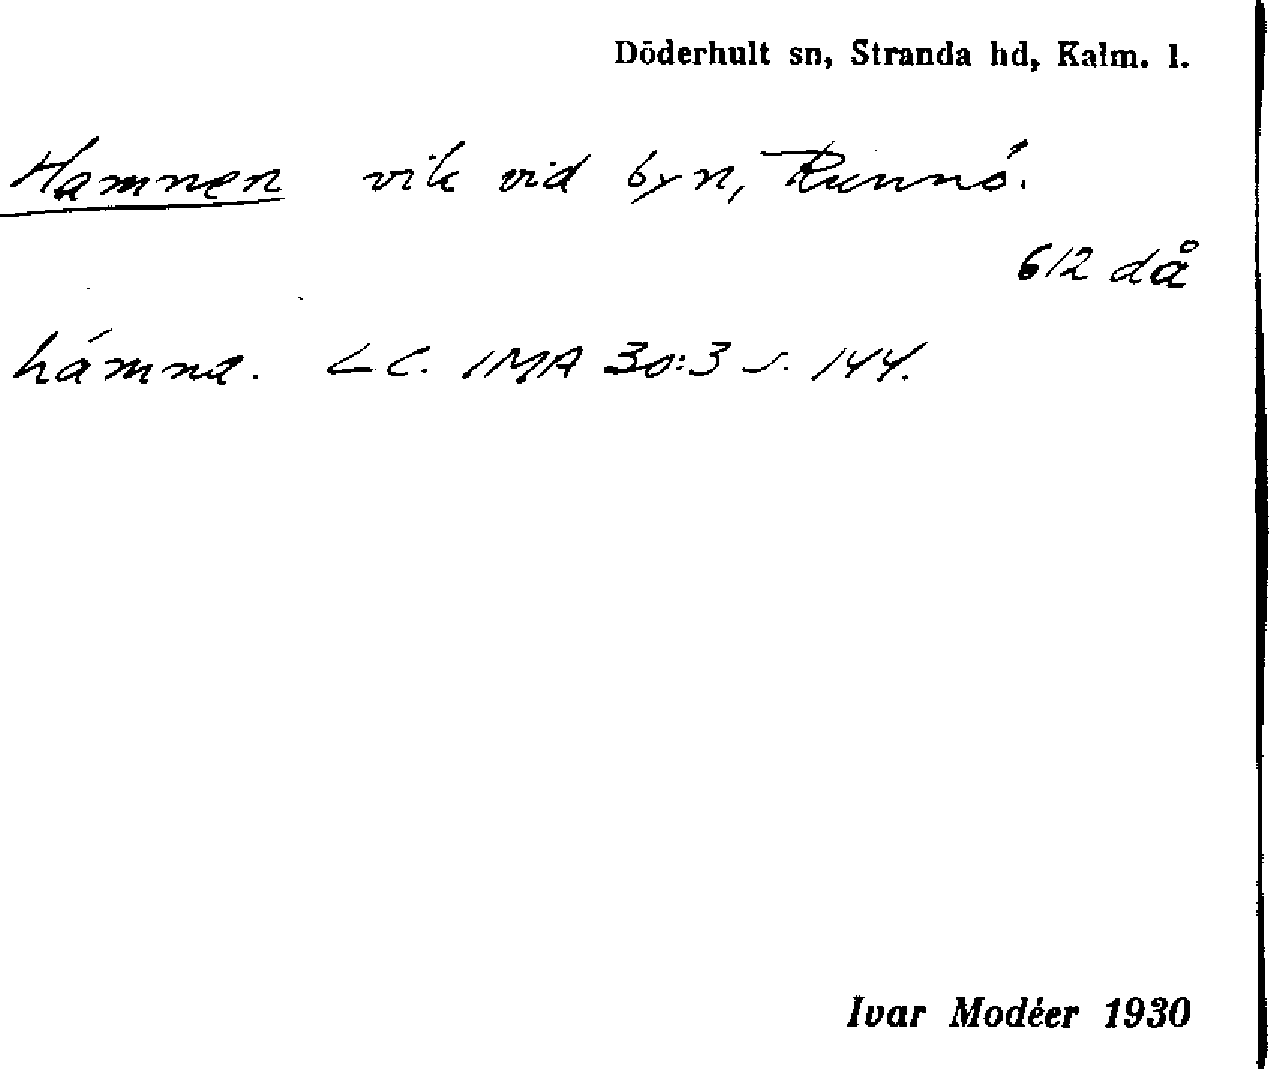 Döderhult sn, Stranda hd, Kalm. l.
Hamnen vik vid byn, Runnö.
612 då
hámna. LC. IMA 30:3 s. 144.
Ivar Modéer 1930